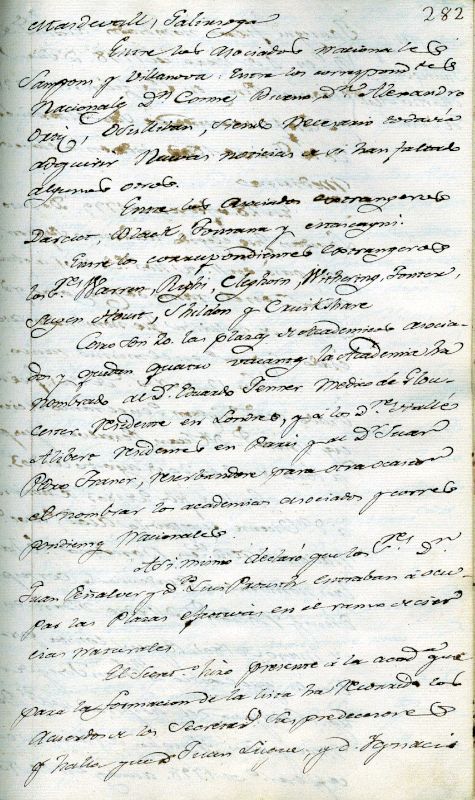 282
Masdevall, Galinsoga
Entre los Asociados nacionales
Samponi y Villanova: Entre los correspond.tes
Nacionales D.n Cosme Bueno, d.n Alexandro
Ortiz, Osullivan, siendo necesario todavia
adquirir nuevas noticias si han faltado
algunos otros.
Entre los Asociados extrangeros
Darcet, Black, Fontana y
Entre los correspondientes extrangeros
los S.res Warren, Righi, Cleghorn, Withering,
Howit, y Cruikshare
Como en las plazas de Academicos asocia-
dos y quedan quatro vacantes la Academia ha
nombrado al D.r Eduardo Jenner Medico de Glou-
cester residente en Londres, y a los d.res Hallé
Alibert residentes en Paris y al D.r Juan
Pedro Franc, reserbandose para otra ocasion
el nombrar los academicos asociados y corres
pondientes Nacionales.
Asimismo declaró que los S.res D.n
Juan Peñalver y d.n Luis Proust entraban á ocu
par las Plazas efectivas en el ramo de cien
cias naturales.
El Secret.o hizo presente á la acad.a que
para la formacion de la lista ha recorrido los
Acuerdos de los Secretar.s sus predecesores
y halla que d.n Juan Luque, y d. Ignacio